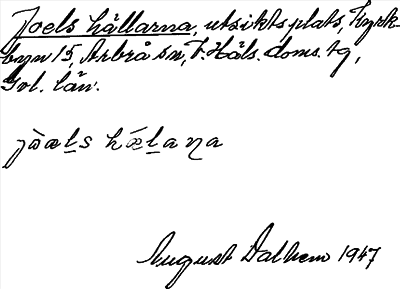 Joels hällarna, utsiktsplats, Kyrk-
byn 15, Arbrå sn, V. Häls. doms. tg,
Gvl. län.
jòæḻs hǽḻaɳa
August Dalhem 1947